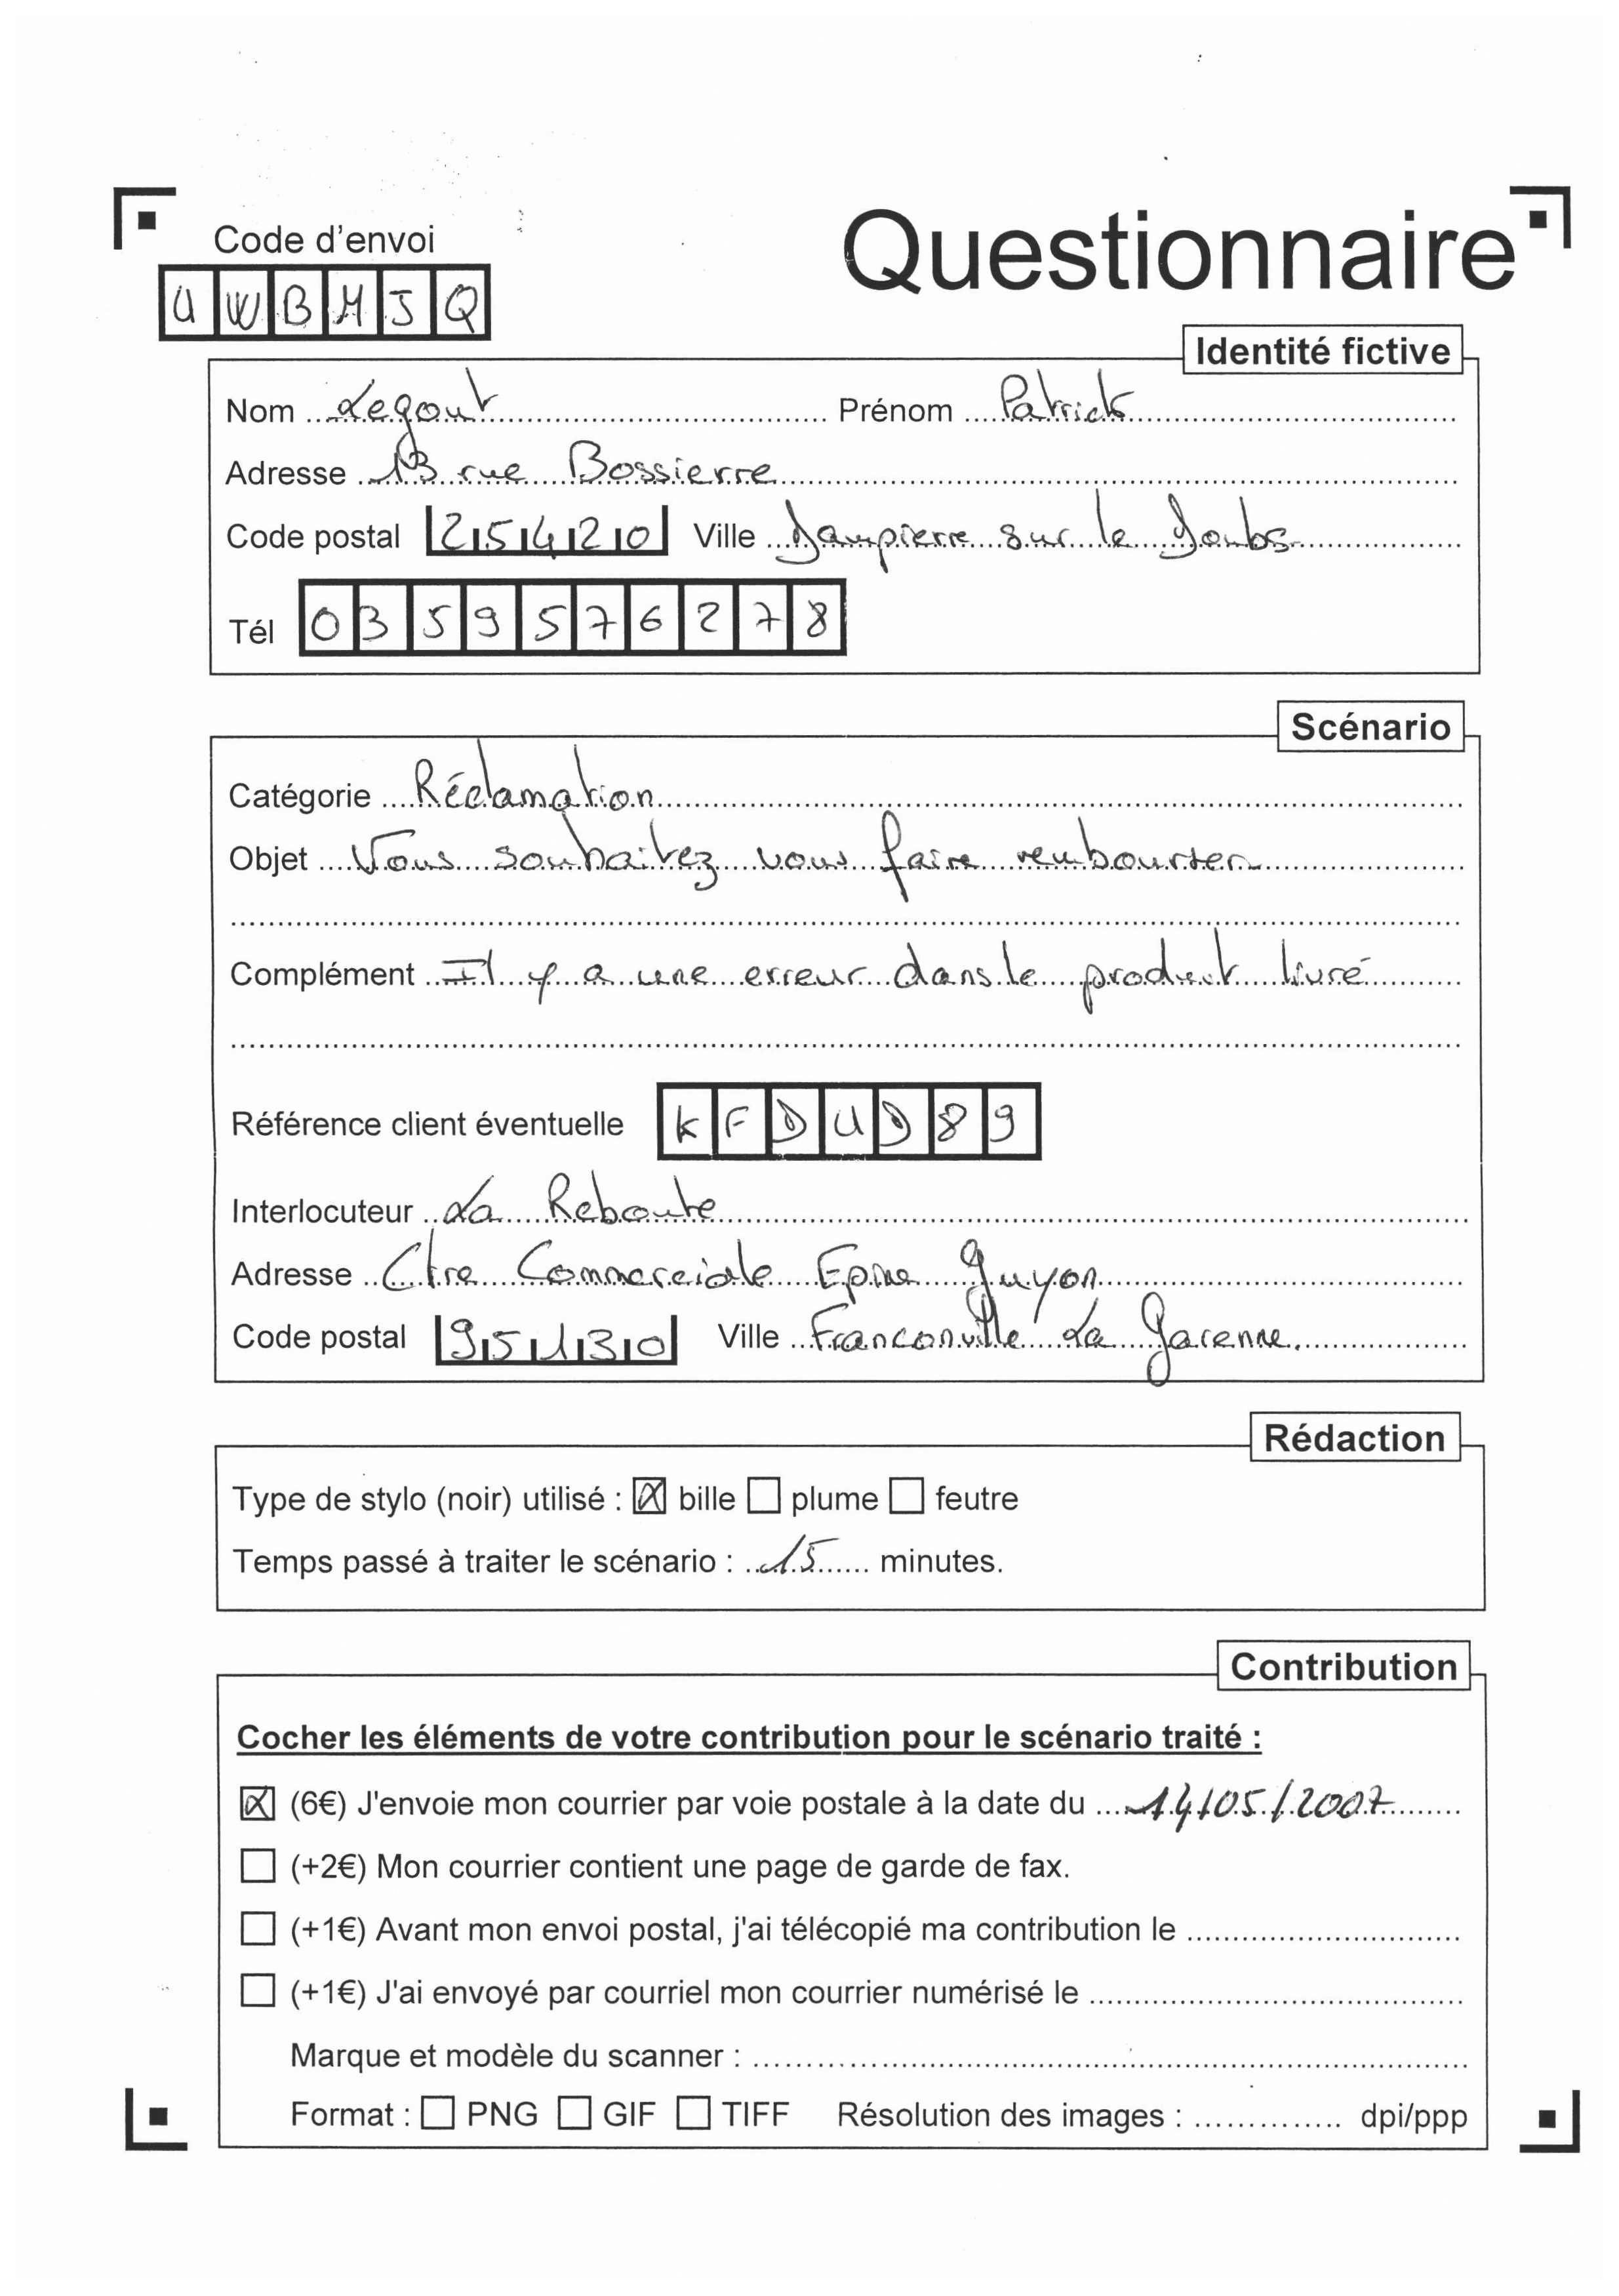 Questionnaire
Code d'envoi
UWBMJQ
Identité fictive
Nom Legout Prénom Patrick
Adresse 13 rue Bossierre
Code postal 25420 Ville Dampierre sur le Doubs
Tél 0359576278
Scénario
Catégorie Réclamation
Objet Vous souhaitez vous faire rembourser
Complément Il y a une erreur dans le produit livré
Référence client éventuelle KFDUD89
Interlocuteur La Reboute
Adresse Ctre Commerciale Epine Guyon
Code postal 95130 Ville Franconville La Garenne.
Rédaction
Type de stylo (noir) utilisé : ☒ bille ☐ plume ☐ feutre
Temps passé à traiter le scénario : 15 minutes.
Contribution
Cocher les éléments de votre contribution pour le scénario traité :
☒ (6€) J'envoie mon courrier par voie postale à la date du 14/05/2007
☐ (+2€) Mon courrier contient une page de garde de fax.
☐ (+1€) Avant mon envoi postal, j'ai télécopié ma contribution le
☐ (+1€) J'ai envoyé par courriel mon courrier numérisé le
Marque et modèle du scanner :
Format : ☐ PNG ☐ GIF ☐ TIFF Résolution des images : dpi/ppp